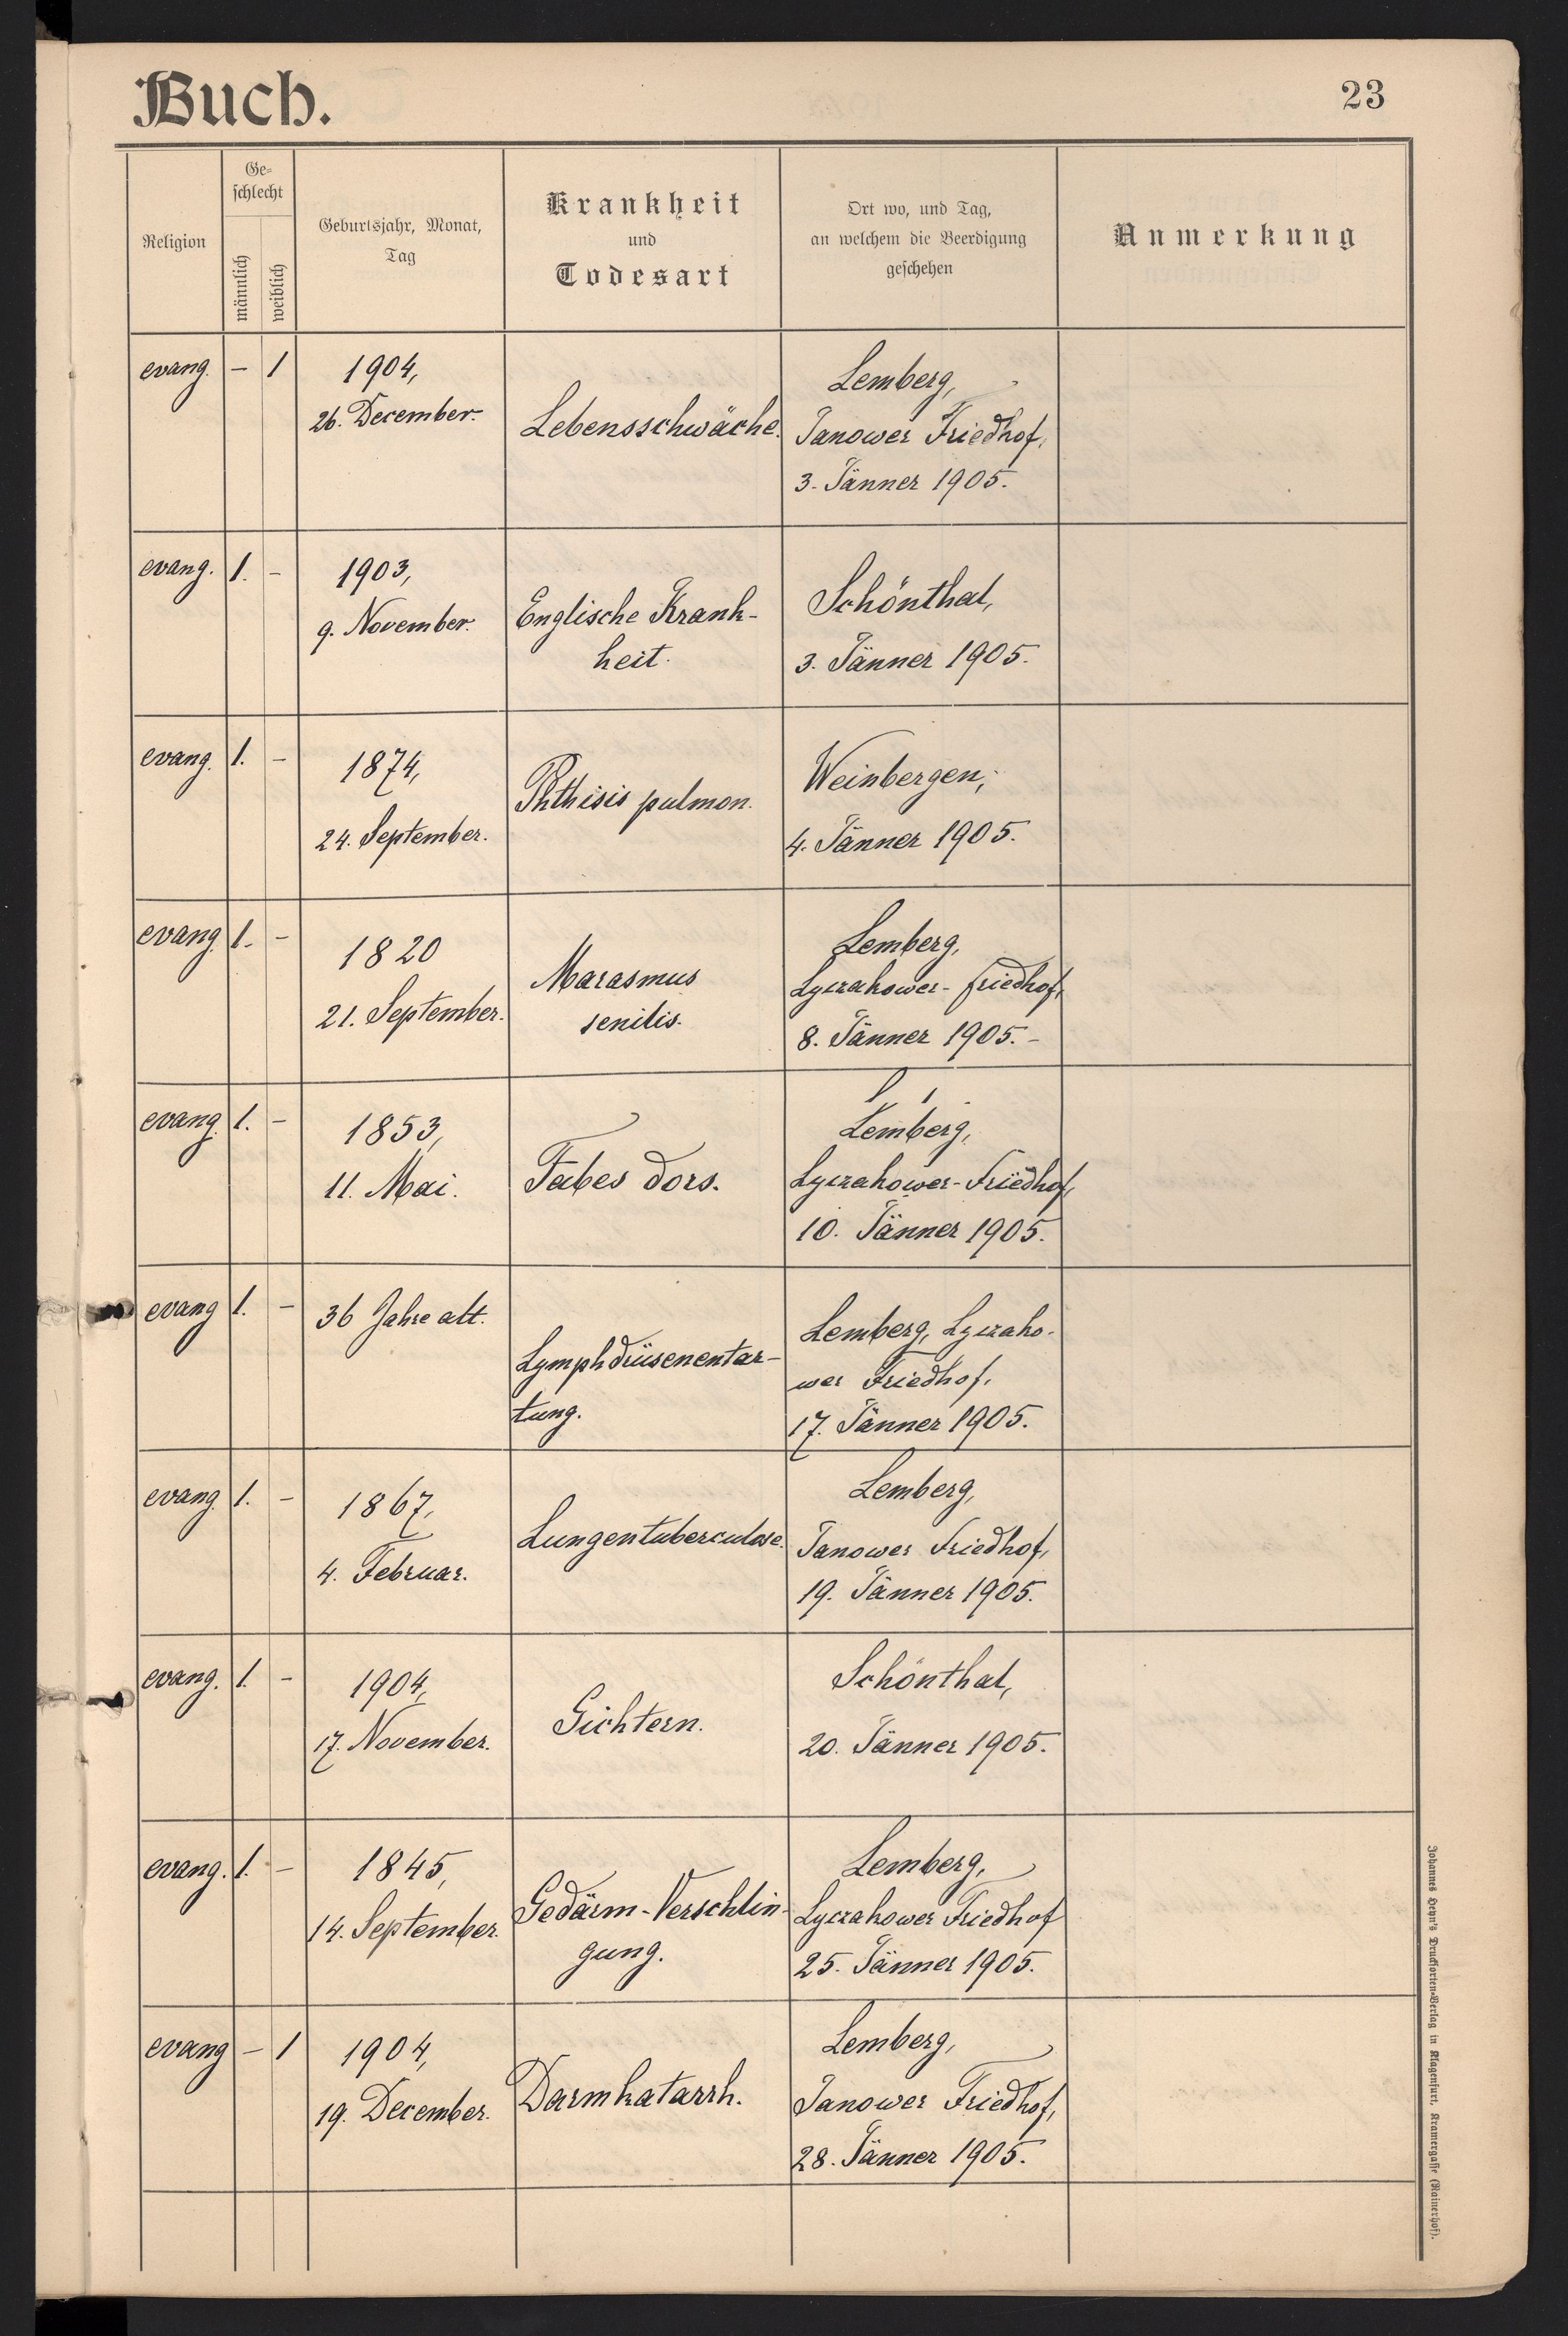 Buch.
23
Religion
Ge-
schlecht
männlich
weiblich
Geburtsjahr, Monat,
Tag
Krankheit
und
Todesart
Ort wo, und Tag,
an welchem die Beerdigung
geschehen
Anmerkung
evang. – 1
1904,
26. December.
Lebensschwäche.
Lemberg,
Janower Friedhof,
3. Jänner 1905.
evang. 1. –
1903,
9. November.
Englische Krank-
heit.
Schönthal,
3. Jänner 1905.
evang. 1. –
1874,
24. September.
Phthisis pulmon.
Weinbergen,
4. Jänner 1905.
evang. 1. –
1820
21. September.
Marasmus
senilis.
Lemberg,
Lyczakower-Friedhof,
8. Jänner 1905. –
evang. 1. –
1853,
11. Mai.
Tabes dors.
Lemberg,
Lyczakower-Friedhof,
10. Jänner 1905.
evang 1. –
36 Jahre alt.
Lymphdrüsenentar-
tung.
Lemberg, Lyczako-
wer Friedhof,
17. Jänner 1905.
evang. 1. –
1867,
4. Februar.
Lungentuberculose.
Lemberg,
Janower Friedhof,
19. Jänner 1905.
evang. 1. –
1904,
17. November.
Gichtern.
Schönthal,
20. Jänner 1905.
evang. 1. –
1845,
14. September.
Gedärm-Verschlin-
gung.
Lemberg,
Lyczakower Friedhof
25. Jänner 1905.
evang – 1
1904,
19. December.
Darmkatarrh.
Lemberg,
Janower Friedhof,
28. Jänner 1905.
Johannes Heyn's Drucksorten-Verlag in Klagenfurt, Kramergasse (Rainerhof).